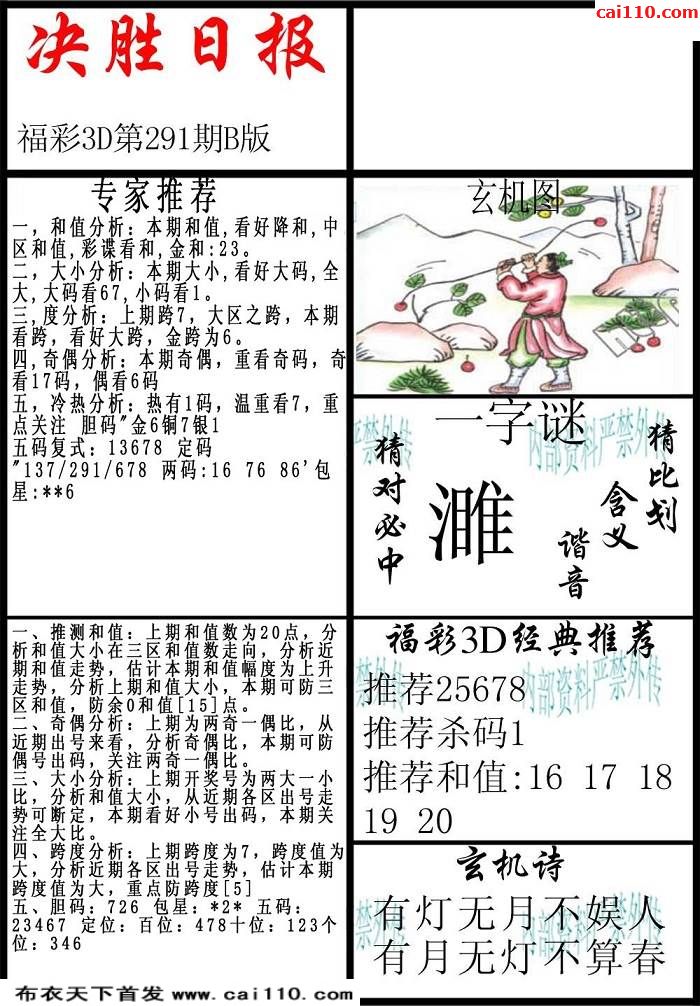 cai110.com
决胜日报
福彩3D第291期B版
专家推荐
一，和值分析：本期和值,看好降和,中
区和值,彩谍看和,金和:23。
二，大小分析：本期大小,看好大码,全
大,大码看67,小码看1。
三,度分析：上期跨7，大区之跨，本期
看跨，看好大跨，金跨为6。
四,奇偶分析：本期奇偶，重看奇码，奇
看17码，偶看6码
五，冷热分析：热有1码，温重看7，重
点关注 胆码"金6铜7银1
五码复式：13678 定码
"137/291/678 两码:16 76 86'包
星:**6
玄机图
一字谜
严禁外传
内部资料严禁外传
猜对必中
猜比划
含义
谐音
雎
一、推测和值：上期和值数为20点，分
析和值大小在三区和值数走向，分析近
期和值走势，估计本期和值幅度为上升
走势，分析上期和值大小，本期可防三
区和值，防余0和值[15]点。
二、奇偶分析：上期为两奇一偶比，从
近期出号来看，分析奇偶比，本期可防
偶号出码，关注两奇一偶比。
三、大小分析：上期开奖号为两大一小
比，分析和值大小，从近期各区出号走
势可断定，本期看好小号出码，本期关
注全大比。
四、跨度分析：上期跨度为7，跨度值为
大，分析近期各区出号走势，估计本期
跨度值为大，重点防跨度[5]
五、胆码：726 包星：*2* 五码：
23467 定位：百位：478十位：123个
位：346
福彩3D经典推荐
严禁外传
内部资料严禁外传
推荐25678
推荐杀码1
推荐和值:16 17 18
19 20
玄机诗
严禁外传
内部资料严禁外传
有灯无月不娱人
有月无灯不算春
布衣天下首发 www.cai110.com